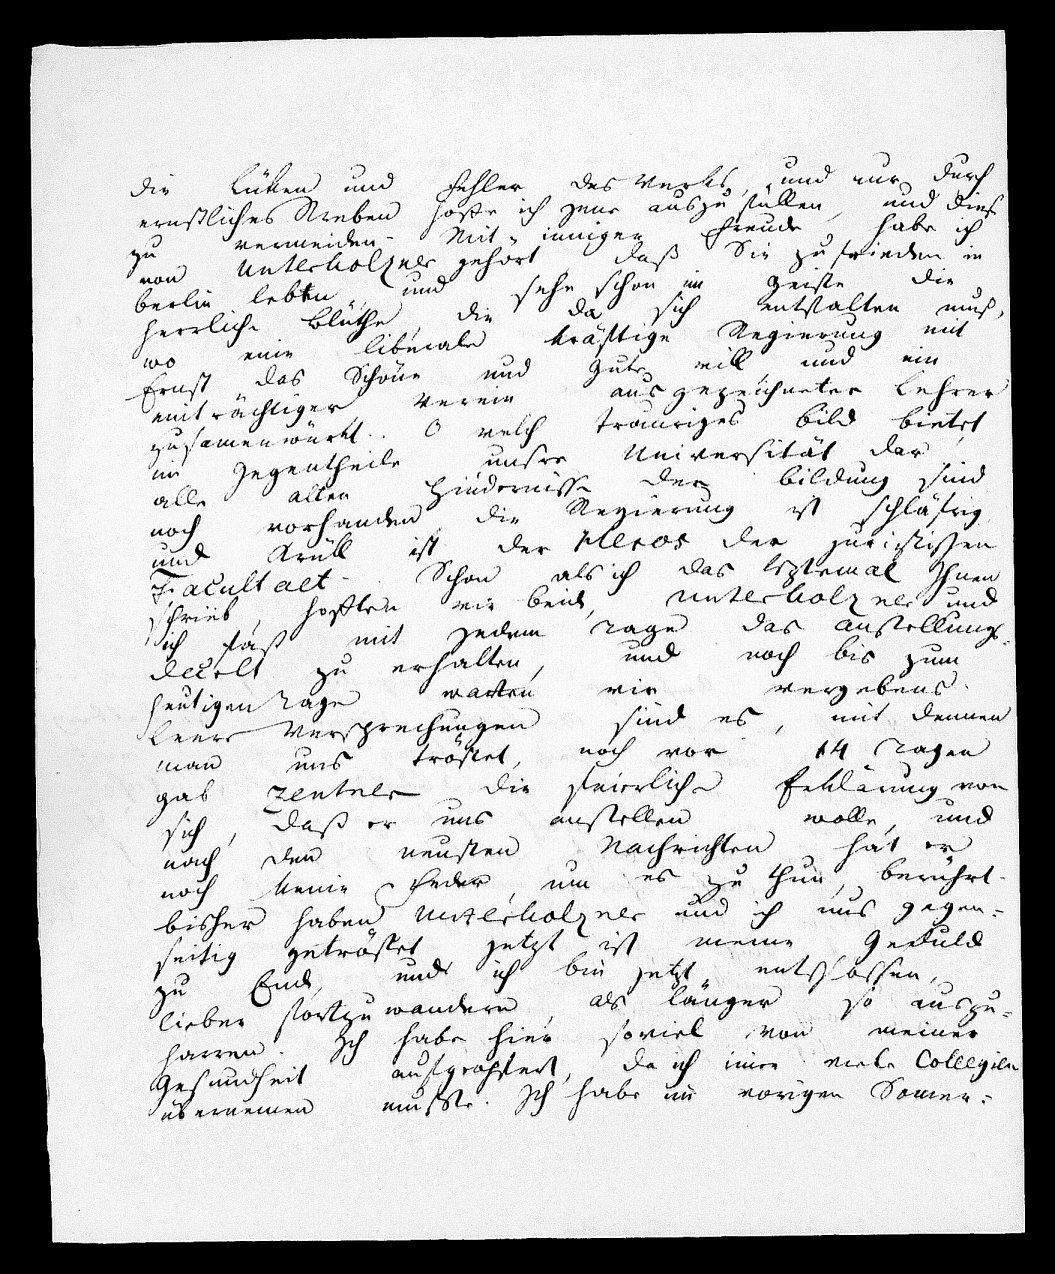 die Lüken und Fehler des Werks, und nur durch
ernstliches Streben hoffe ich jene auszufüllen, und diese
zu vermeiden. Mit inniger Freude habe ich
von Unterholzner gehört daß Sie zufrieden in
Berlin lebten, und sehe schon im Geiste die
herrliche Blüthe, die da sich entfalten muß,
wo eine liberale kräftige Regierung mit
Ernst das Schöne und Gute will, und ein
einträchtiger Verein ausgezeichneter Lehrer
zusamenwürkt. O welch trauriges Bild bietet
im Gegentheile unsre Universität dar,
alle alten Hindernisse der Bildung sind
noch vorhanden, die Regierung ist schläfrig,
und Krüll ist der Heros der juristischen
Facultaet. Schon als ich das leztemal Ihnen
schrieb, hofften wir beide, Unterholzner und
ich fast mit jedem Tage das Anstellungs-
decret zu erhalten, und noch bis zum
heutigen Tage warten wir vergebens.
Leere Versprechungen sind es, mit denen
man uns tröstet, noch vor 14 Tagen
gab Zentner die feierliche Erklärung von
sich, daß er uns anstellen wolle, und
nach den neusten Nachrichten hat er
noch keine Feder, um es zu thun, berührt.
bisher haben Unterholzner und ich uns gegen-
seitig getröstet jetzt ist meine Geduld
zu Ende, und ich bin jetzt entschlossen,
lieber fortzuwandern, als länger so auszu-
harren. Ich habe hier soviel von meiner
Gesundheit aufgeopfert, da ich imer viele Collegien
übernemen mußte. Ich habe im vorigen Somer-